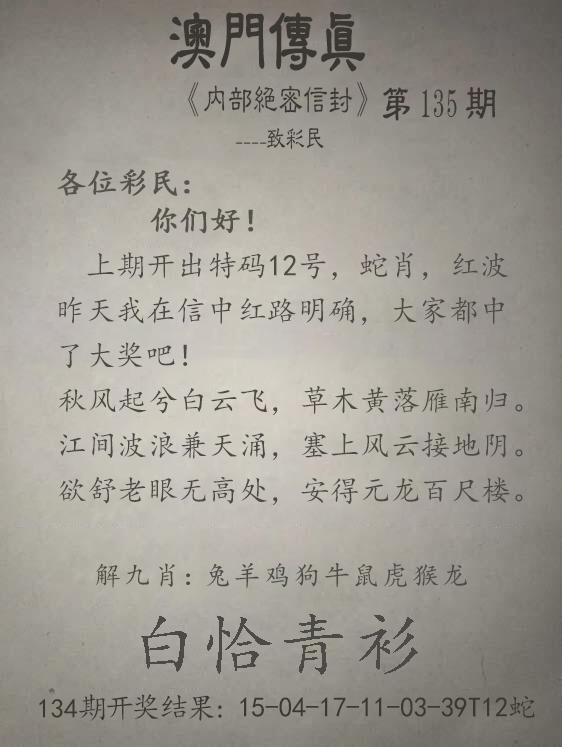 澳門傳眞
《内部絕密信封》第135期
----致彩民
各位彩民：
你们好！
上期开出特码12号，蛇肖，红波
昨天我在信中红路明确，大家都中
了大奖吧！
秋风起兮白云飞，草木黄落雁南归。
江间波浪兼天涌，塞上风云接地阴。
欲舒老眼无高处，安得元龙百尺楼。
解九肖：兔羊鸡狗牛鼠虎猴龙
白恰青衫
134期开奖结果：15-04-17-11-03-39T12蛇